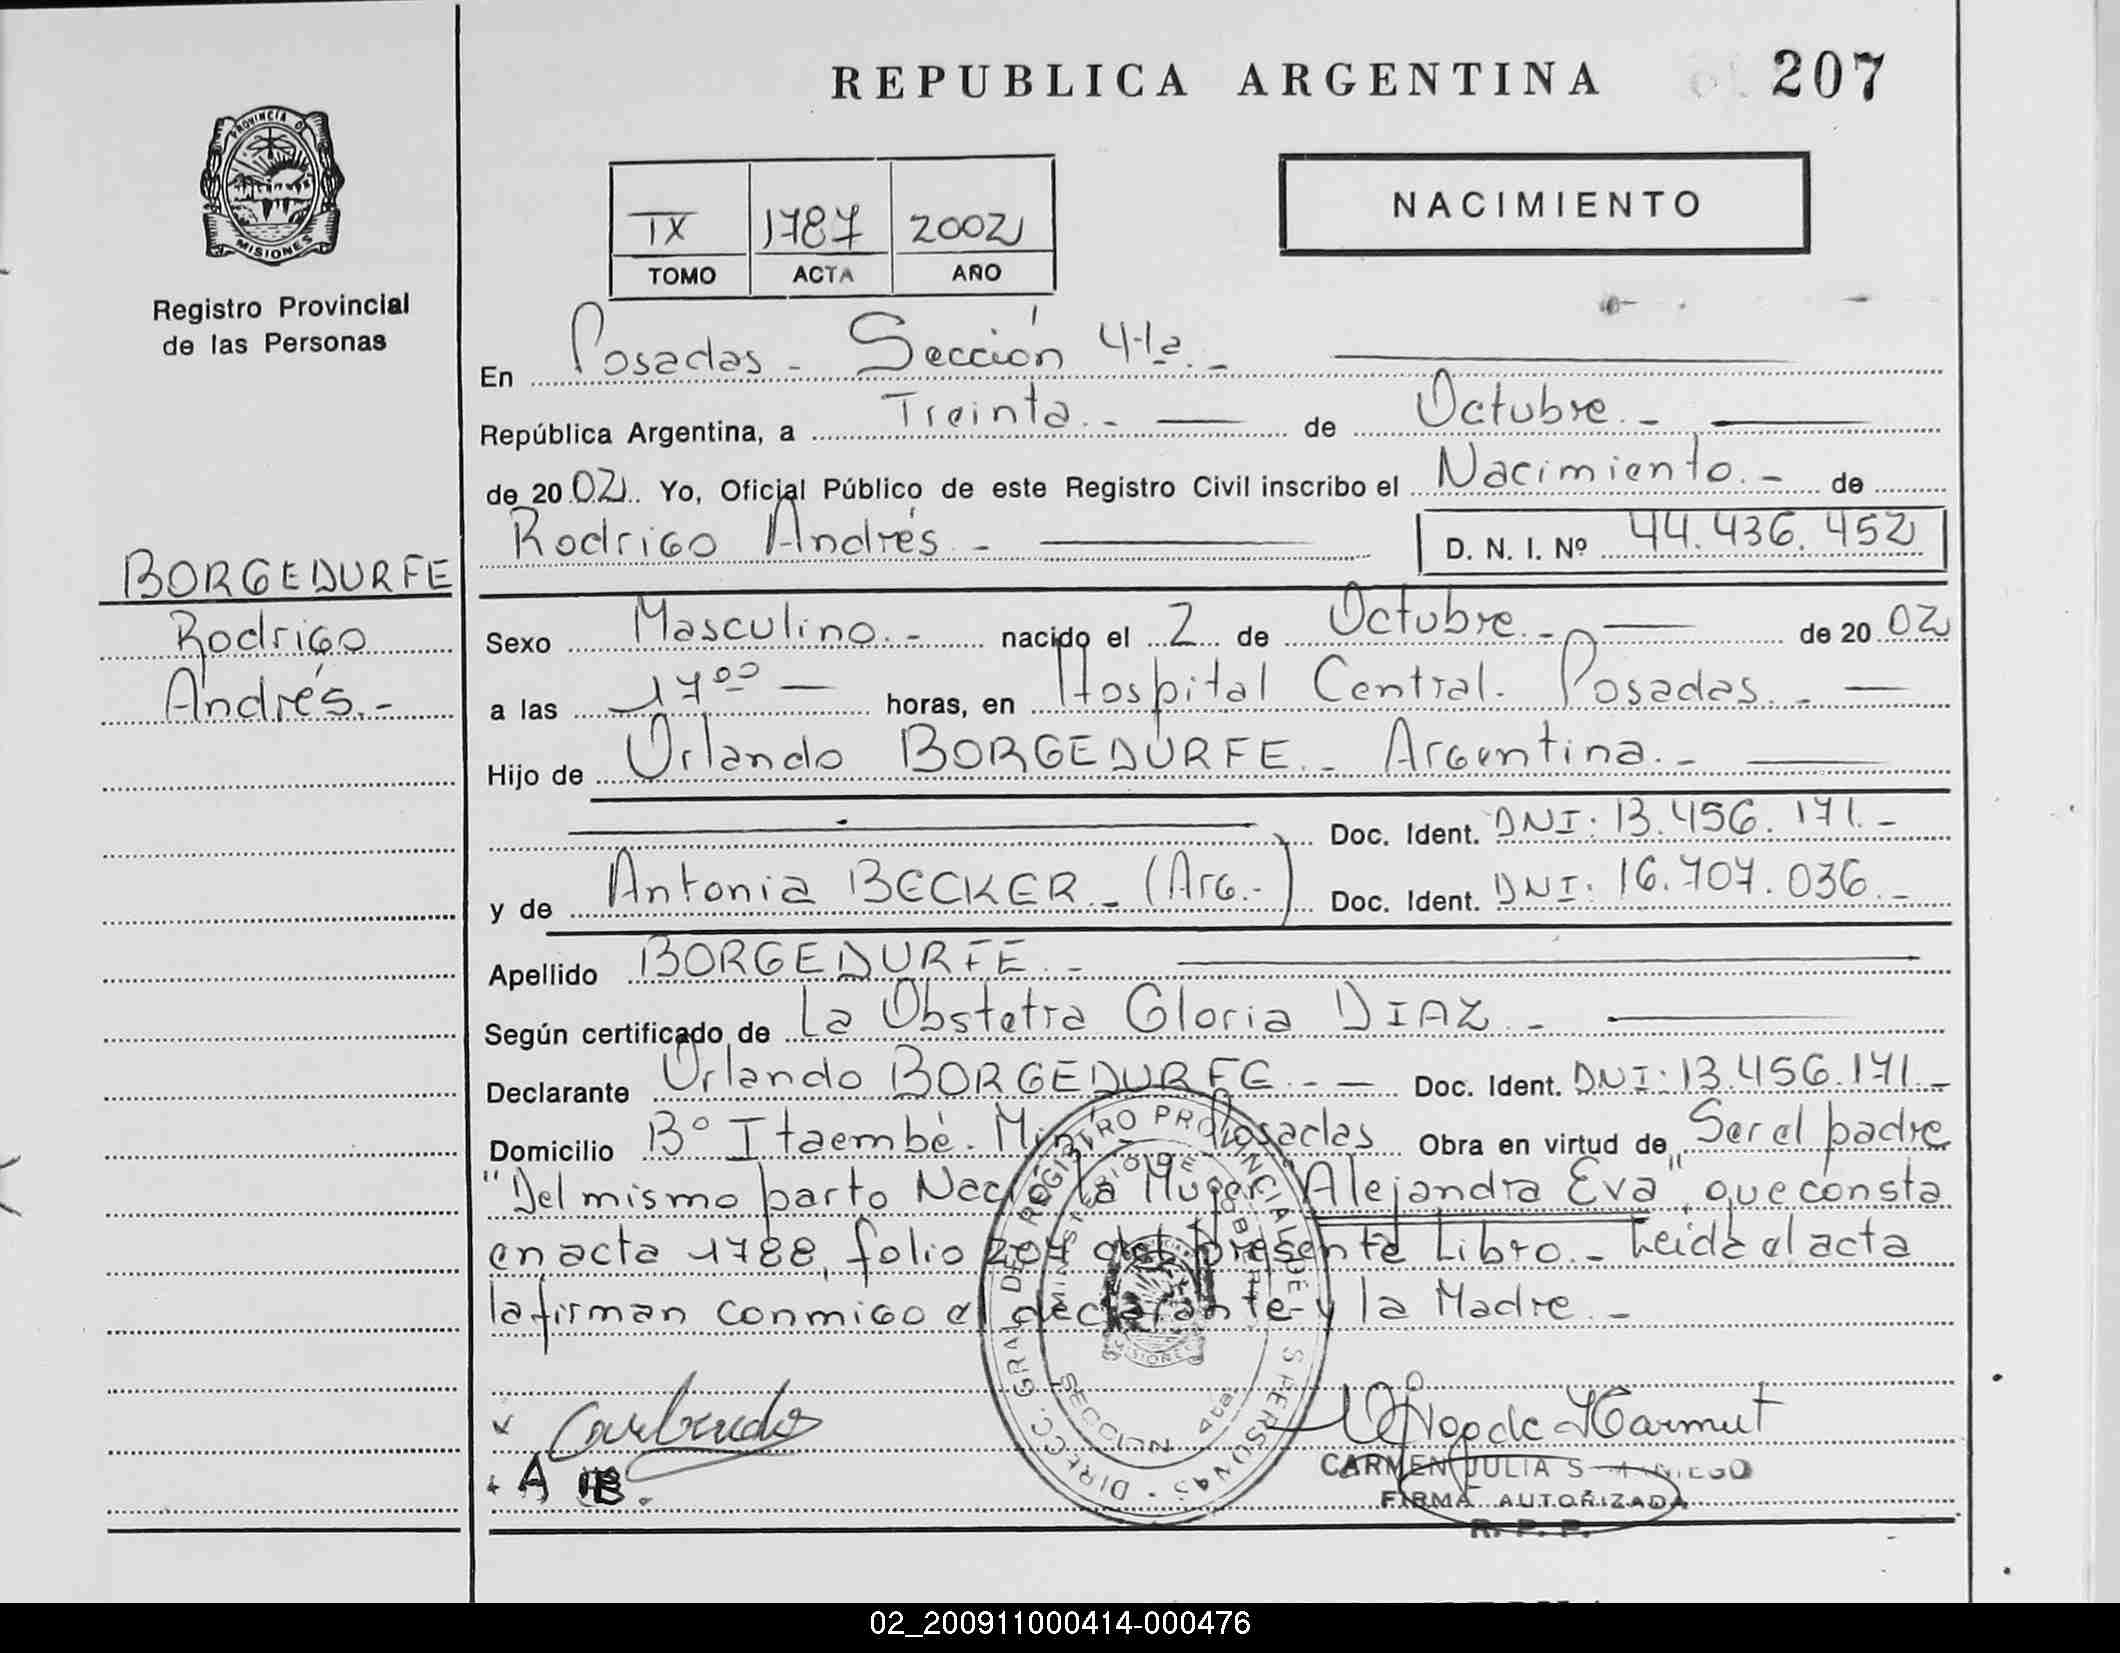 REPUBLICA ARGENTINA 207
PROVINCIA DE
MISIONES
Registro Provincial
de las Personas
IX 1787 2002
TOMO ACTA AÑO
NACIMIENTO
En Posadas - Sección 4ta.-
República Argentina, a Treinta.- de Octubre.-
de 2002. Yo, Oficial Público de este Registro Civil inscribo el Nacimiento.- de
Rodrigo Andrés - D. N. I. Nº 44.436.452
BORGEDURFE
Rodrigo
Andrés.-
Sexo Masculino.- nacido el 2 de Octubre.- de 2002
a las 17 00 horas, en Hospital Central. Posadas.-
Hijo de Orlando BORGEDURFE.- Argentina.-
Doc. Ident. DNI: 13.456.171.-
y de Antonia BECKER.- (Arg.-) Doc. Ident. DNI: 16.707.036.-
Apellido BORGEDURFE.-
Según certificado de La Obstetra Gloria DIAZ.-
Declarante Orlando BORGEDURFE.- Doc. Ident. DNI: 13.456.171.-
Domicilio Bº Itaembé. Miní Posadas Obra en virtud de Ser el padre
"Del mismo parto Nació la Mujer "Alejandra Eva", que consta
en acta 1788, folio 207 del presente Libro.- Leida el acta
la firman conmigo el declarante y la Madre.-
DIRECC. GRAL DEL REGISTRO PROVINCIAL DE PERSONAS
MINISTERIO DE
MISIONES
SECCION 4ta.
A B.
CARMEN JULIA
FIRMA AUTORIZADA
R. P. P.
02_200911000414-000476